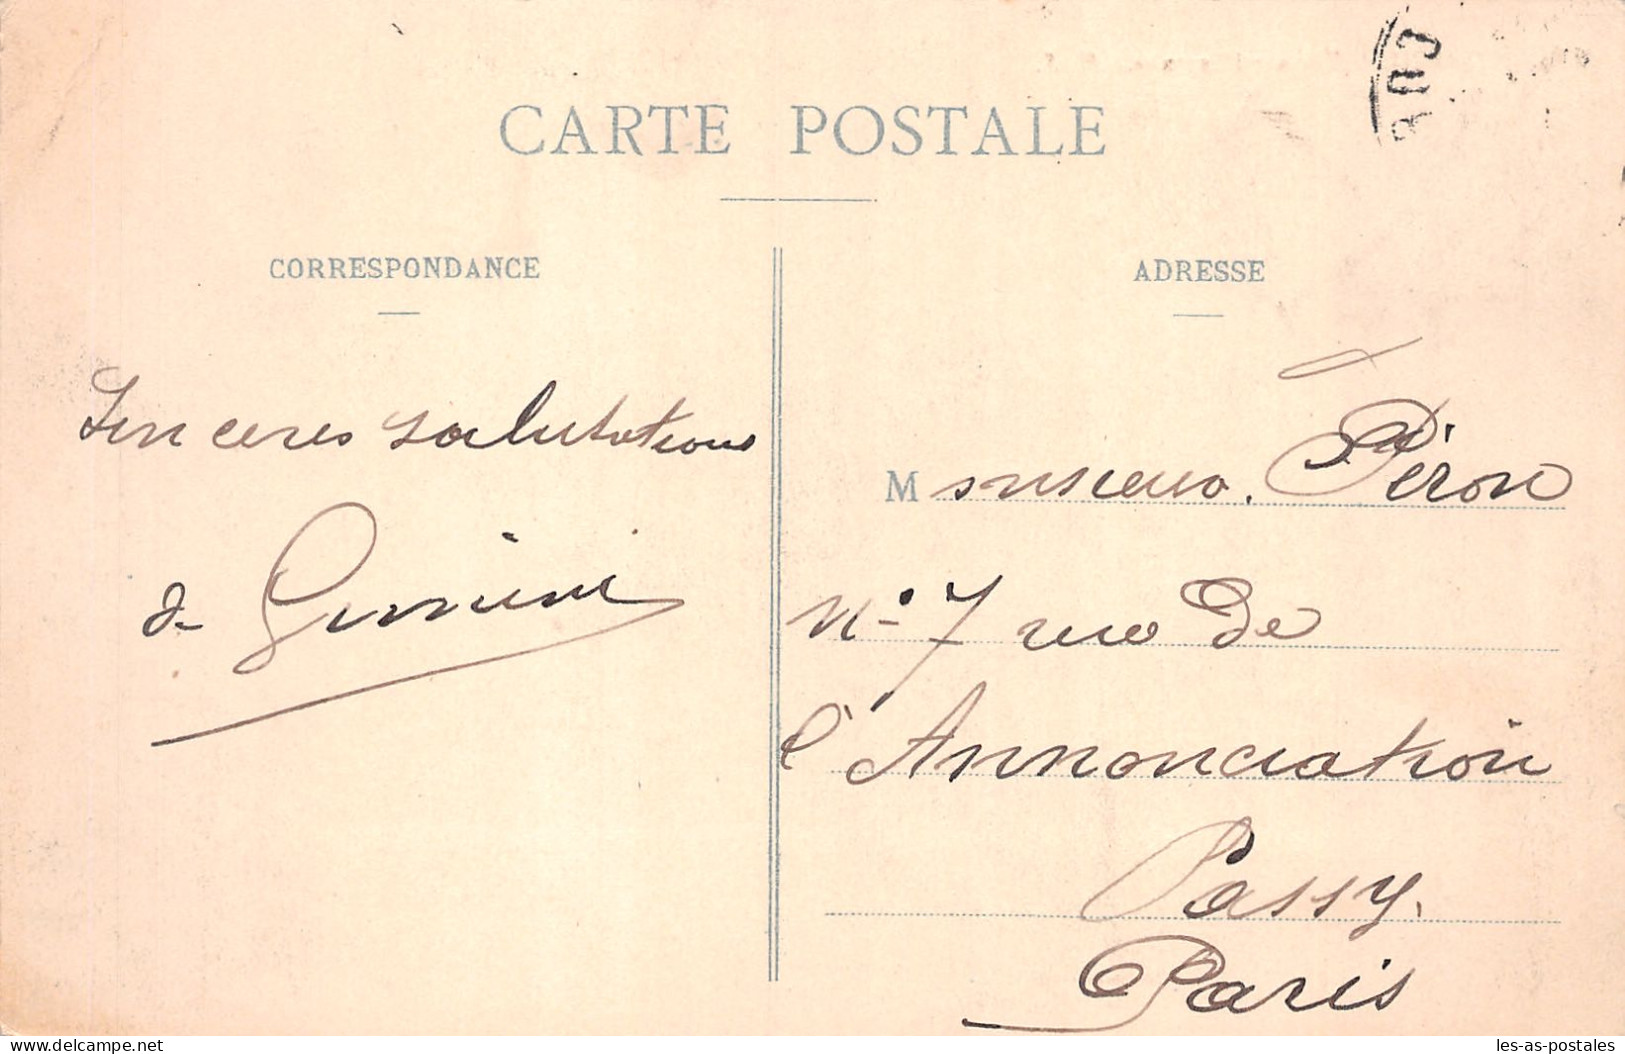 CARTE POSTALE
CORRESPONDANCE
ADRESSE
Sinceres salutations
de
Monsieur. Péron
N° 7 rue de
l'Annonciation
Passy.
Paris
Delcampe.net
les-as-postales